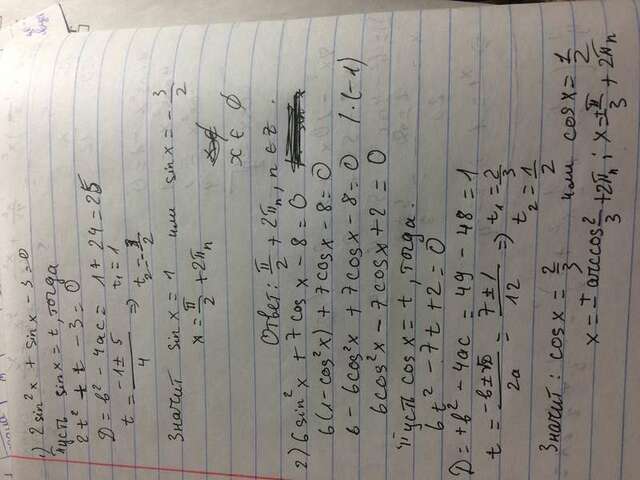 1) 2sin²x + sinx - 3 = 0
Пусть sinx = t, тогда
2t² + t - 3 = 0
D = b² - 4ac = 1 + 24 = 25
t = (-1 ± 5)/4 => t₁ = 1 t₂ = -3/2
Значит sinx = 1 или sinx = -3/2
x = π/2 + 2πn x ∈ ∅
Ответ: π/2 + 2πn, n ∈ Z.
2) 6sin²x + 7cosx - 8 = 0
6(1 - cos²x) + 7cosx - 8 = 0
6 - 6cos²x + 7cosx - 8 = 0 | · (-1)
6cos²x - 7cosx + 2 = 0
Пусть cosx = t, тогда.
6t² - 7t + 2 = 0
D = b² - 4ac = 49 - 48 = 1
t = (-b ± √D)/2a = (7 ± 1)/12 => t₁ = 2/3 t₂ = 1/2
Значит: cosx = 2/3 или cosx = 1/2
x = ± arccos 2/3 + 2πn; x = ± π/3 + 2πn